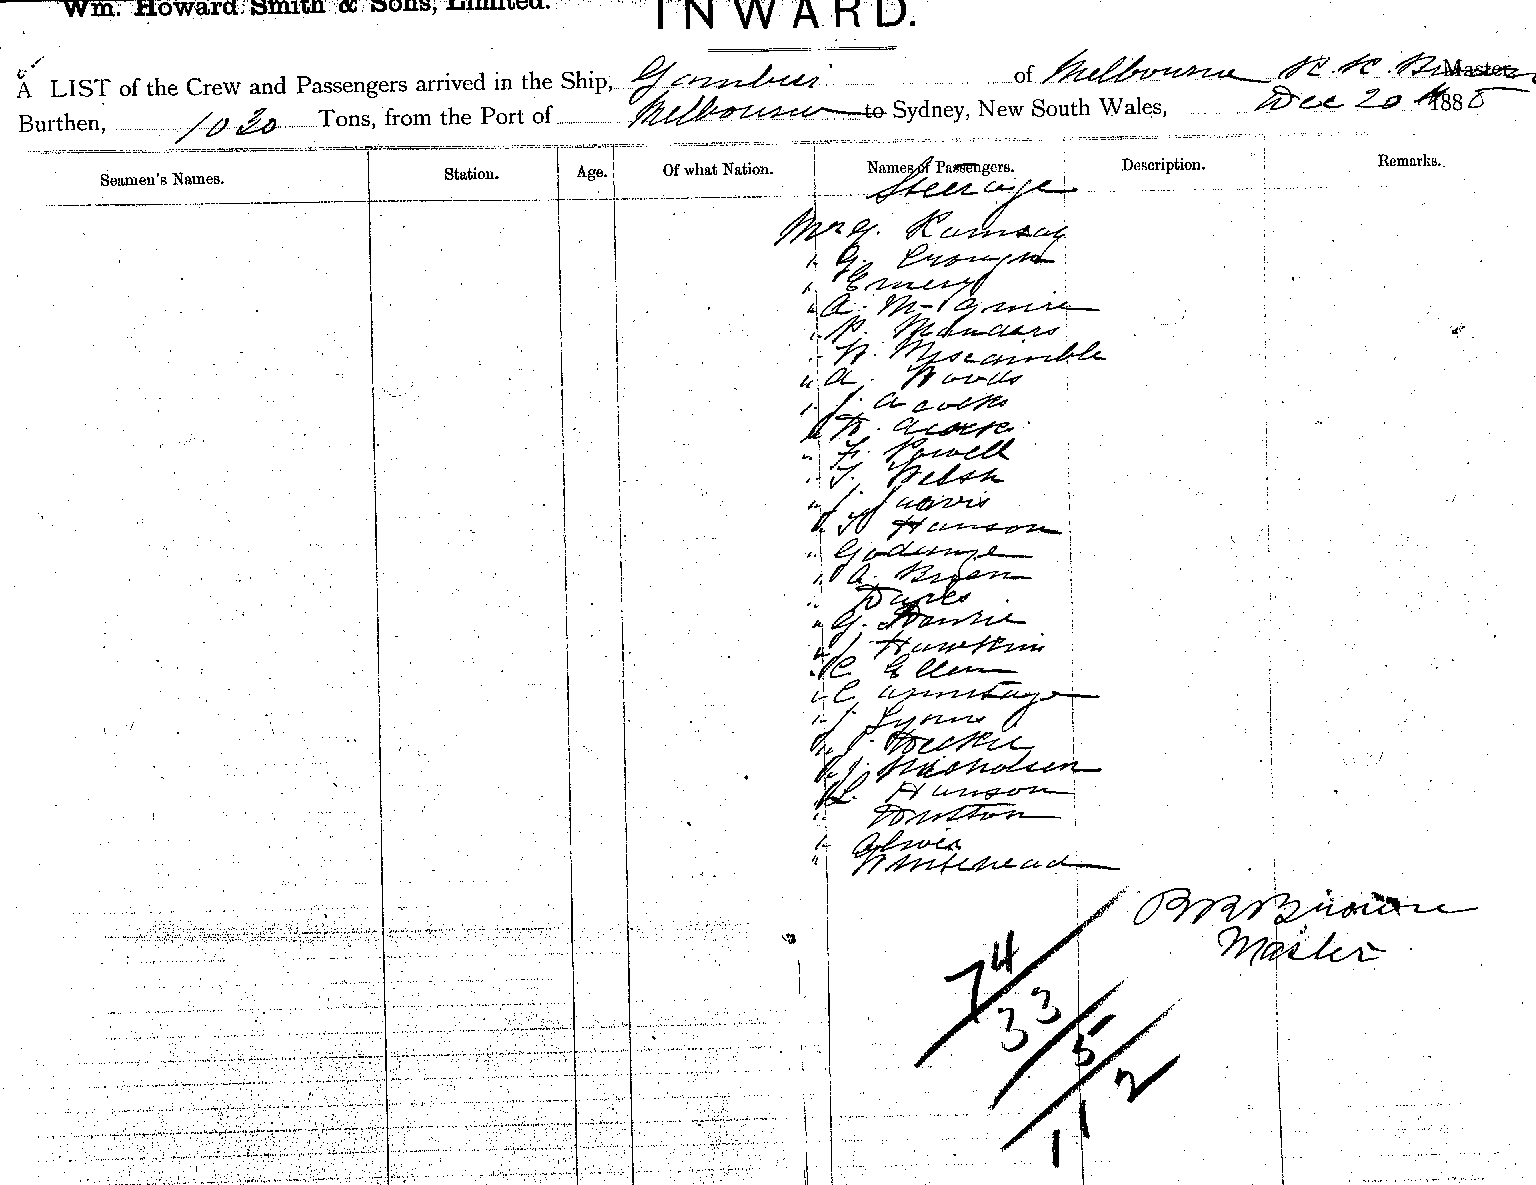 Wm. Howard Smith & Sons, Limited.
INWARD.
A LIST of the Crew and Passengers arrived in the Ship, Gambier of Melbourne R R Master
Burthen, 1030 Tons, from the Port of Melbourne to Sydney, New South Wales, Dec 20 188
Seamen's Names. Station. Age. Of what Nation. Names of Passengers. Description. Remarks.
Steerage
G. Ramsay
" G.
" Emery
" A. McGuire
" P. Manders
" W. Miscamble
" A. Woods
" J. Acocks
" W.
" F. Powell
" T. Welsh
" J. Jarvis
" Hanson
"
" A.
" Davies
" G.
" J. Hawkins
" C. Ellen
" C Armitage
" J. Lyons
" J.
" J. Nicholson
" L. Hanson
"
" Oliver
" Whitehead
R R Browne
Master
74
33
5
2
1
1